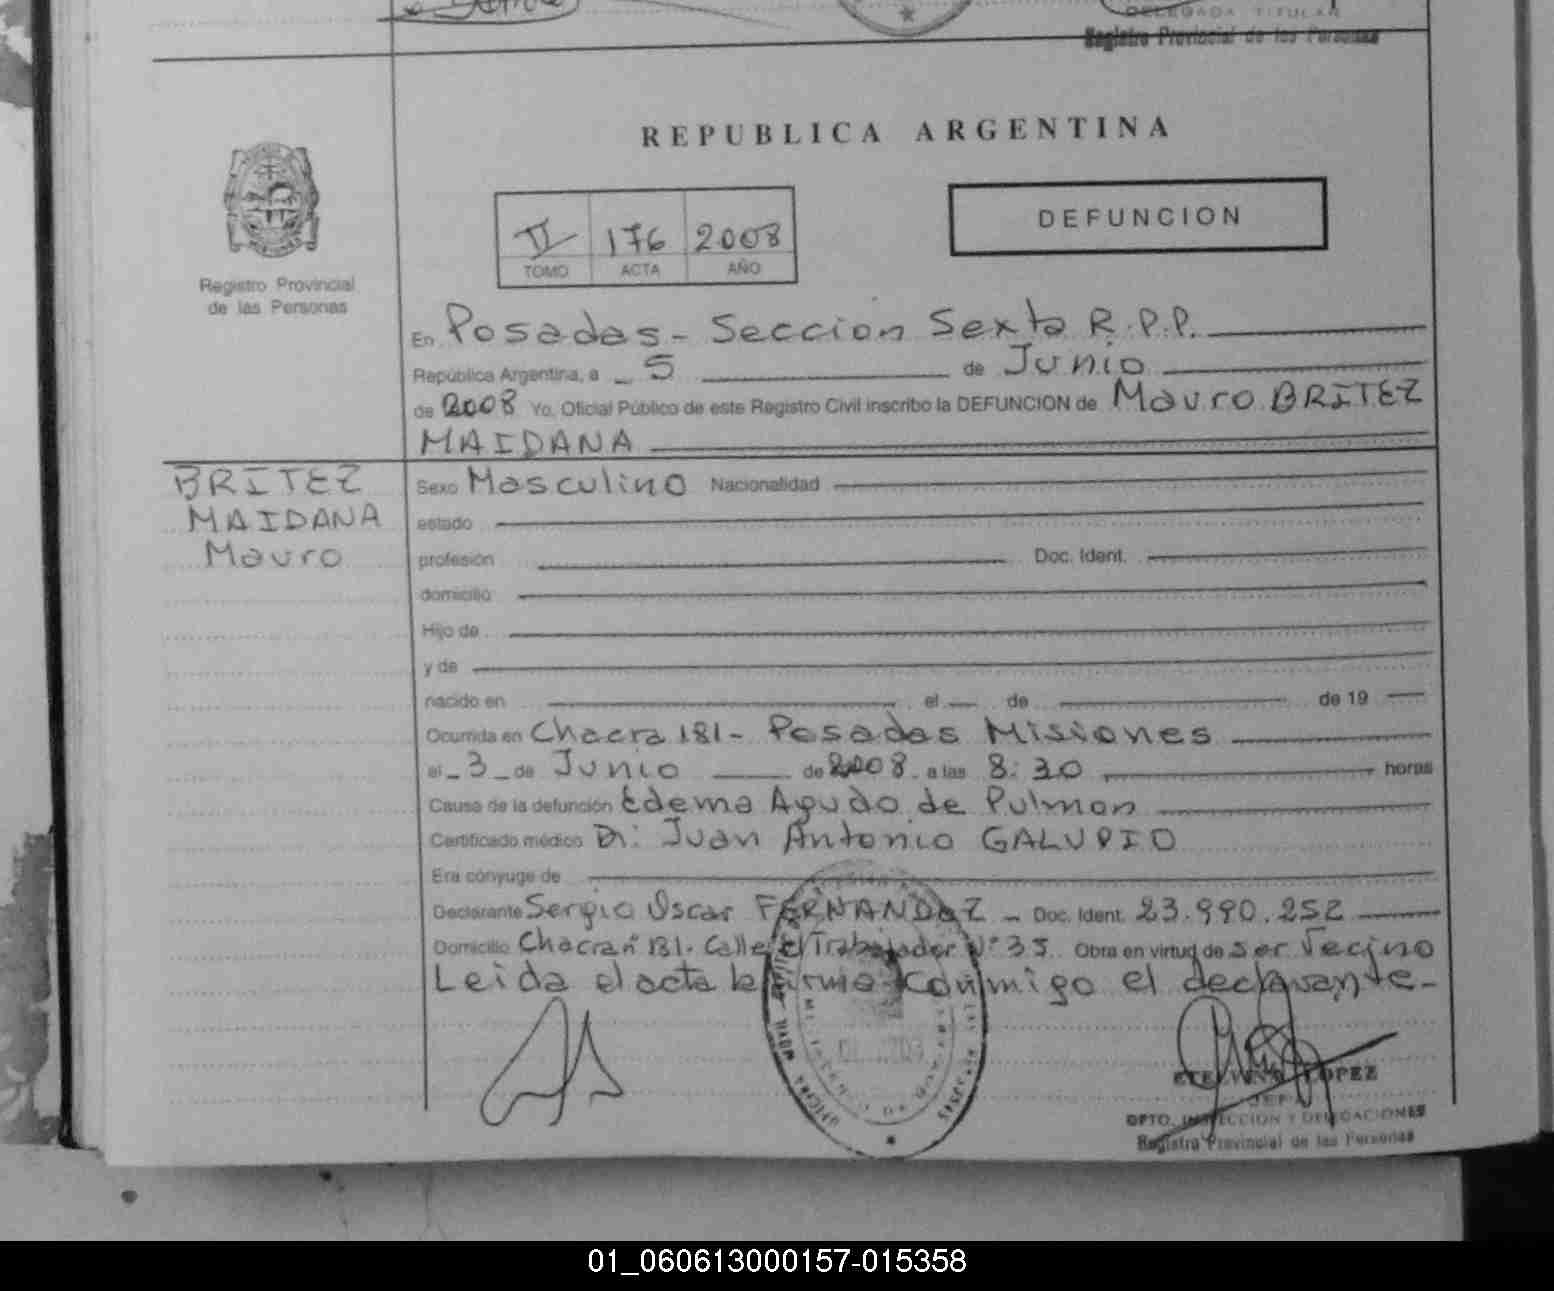 DELEGADA TITULAR
Registro Provincial de las Personas
REPUBLICA ARGENTINA
II 176 2008
TOMO ACTA AÑO
DEFUNCION
Registro Provincial
de las Personas
En Posadas - Seccion Sexta R.P.P.
República Argentina, a 5 de Junio
de 2008 Yo, Oficial Público de este Registro Civil inscribo la DEFUNCION de Mauro BRITEZ
MAIDANA
BRITEZ
MAIDANA
Mauro
Sexo Masculino Nacionalidad
estado
profesión Doc. Ident.
domicilio
Hijo de
y de
nacido en el de de 19
Ocurrida en Chacra 181 - Posadas Misiones
el 3 de Junio de 2008 a las 8:30 horas
Causa de la defunción Edema Agudo de Pulmon
Certificado médico Dr: Juan Antonio GALUPPO
Era cónyuge de
Declarante Sergio Oscar FERNANDEZ - Doc. Ident. 23.990.252
Domicilio Chacra n° 181. Calle El Trabajador N° 35 Obra en virtud de ser Vecino
Leida el acta la firma conmigo el declarante -
OFICINA MOVIL
ETELVINA LOPEZ
JEFE
DPTO. INSPECCION Y DELEGACIONES
Registro Provincial de las Personas
01_060613000157-015358